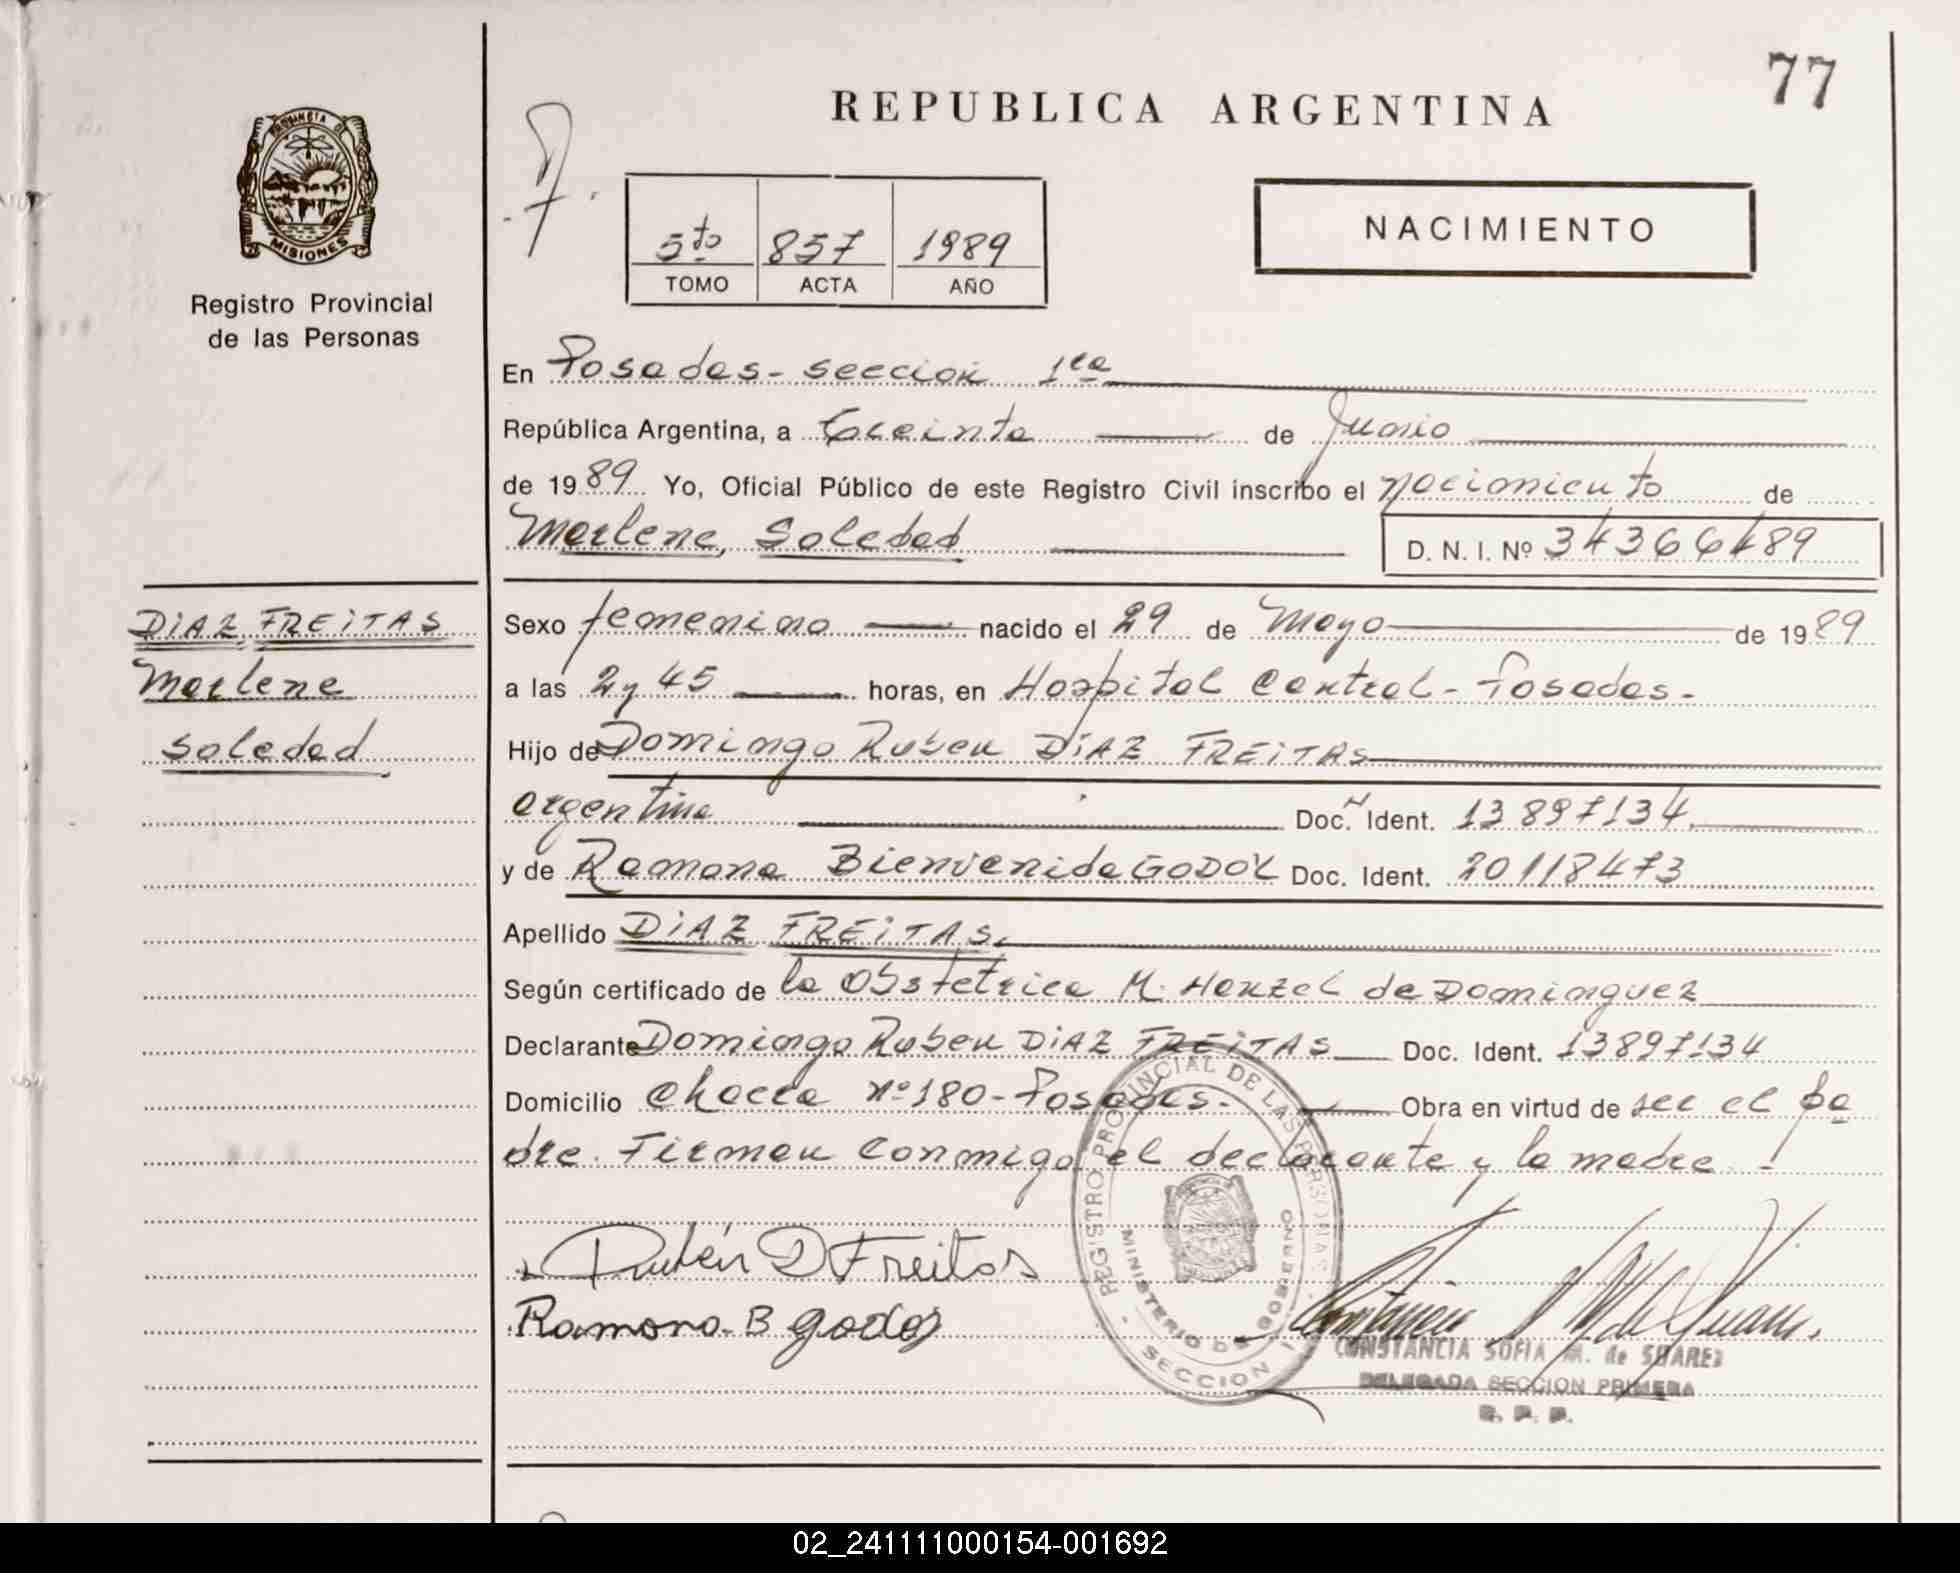 77
REPUBLICA ARGENTINA
PROVINCIA DE
MISIONES
Registro Provincial
de las Personas
5to 857 1989
TOMO ACTA AÑO
NACIMIENTO
En Posadas - sección 1ra
República Argentina, a treinta de Junio
de 1989 Yo, Oficial Público de este Registro Civil inscribo el nacimiento de
Marlene, Soledad D. N. I. Nº 34366489
DIAZ FREITAS
Marlene
Soledad
Sexo femenino nacido el 29 de Mayo de 1989
a las 2 y 45 horas, en Hospital Central - Posadas -
Hijo de Domingo Ruben DIAZ FREITAS
argentina Doc. Ident. 13897134
y de Ramona Bienvenida GODOY Doc. Ident. 20118473
Apellido DIAZ FREITAS.
Según certificado de la Obstetrica M. Henzel de Dominguez
Declarante Domingo Ruben DIAZ FREITAS Doc. Ident. 13897134
Domicilio Chacra nº 180 - Posadas - Obra en virtud de ser el pa
dre. Firman conmigo el declarante y la madre -
Rubén D Freitas
Ramona B Godoy
REGISTRO PROVINCIAL DE LAS PERSONAS
MINISTERIO DE GOBIERNO
- SECCION 1 -
CONSTANCIA SOFIA M. de SUAREZ
DELEGADA SECCION PRIMERA
R. P. P.
02_241111000154-001692